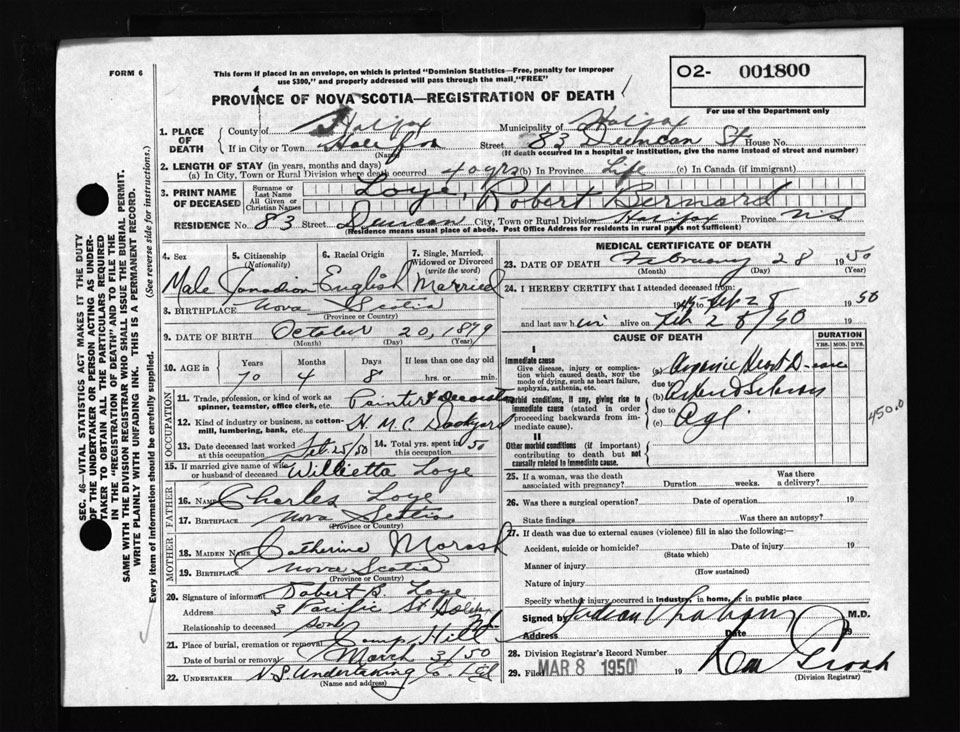 FORM 6
This form if placed in an envelope, on which is printed "Dominion Statistics—Free, penalty for improper
use $300," and properly addressed will pass through the mail, "FREE"
O2- 001800
For use of the Department only
PROVINCE OF NOVA SCOTIA—REGISTRATION OF DEATH
1. PLACE OF DEATH
County of Halifax Municipality of Halifax
If in City or Town Halifax Street 83 Duncan St House No.
(Name) (If death occurred in a hospital or institution, give the name instead of street and number)
2. LENGTH OF STAY (in years, months and days)
(a) In City, Town or Rural Division where death occurred 40 yrs (b) In Province Life (c) In Canada (if immigrant)
3. PRINT NAME OF DECEASED
Surname or Last Name
All Given or Christian Names
Loye, Robert Bernard
RESIDENCE No. 83 Street Duncan City, Town or Rural Division Halifax Province N.S
(Residence means usual place of abode. Post Office Address for residents in rural parts not sufficient)
4. Sex
Male
5. Citizenship (Nationality)
Canadian
6. Racial Origin
English
7. Single, Married, Widowed or Divorced (write the word)
Married
8. BIRTHPLACE Nova Scotia
(Province or Country)
9. DATE OF BIRTH October 20, 1879
(Month) (Day) (Year)
10. AGE in Years Months Days If less than one day old
70 4 8 hrs. or min.
OCCUPATION
11. Trade, profession, or kind of work as spinner, teamster, office clerk, etc. Painter & Decorator
12. Kind of industry or business, as cotton-mill, lumbering, bank, etc. H.M.C. Dockyard
13. Date deceased last worked at this occupation Feb 25/50
14. Total yrs. spent in this occupation 50
15. If married give name of wife or husband of deceased Willietta Loye
FATHER
16. Name Charles Loye
17. Birthplace Nova Scotia
(Province or Country)
MOTHER
18. Maiden Name Catherine Morash
19. Birthplace Nova Scotia
(Province or Country)
20. Signature of informant Robert B. Loye
Address 3 Pacific St
Relationship to deceased son
21. Place of burial, cremation or removal Camp Hill
Date of burial or removal March 3/50
22. UNDERTAKER N.S. Undertaking Co. Ltd
(Name and address)
MEDICAL CERTIFICATE OF DEATH
23. DATE OF DEATH February 28 1950
(Month) (Day) (Year)
24. I HEREBY CERTIFY that I attended deceased from
to Feb 28 1950
and last saw him alive on Feb 28/50 19
CAUSE OF DEATH
DURATION
YRS. MOS. DYS.
I
Immediate cause
Give disease, injury or complication which caused death, not the mode of dying, such as heart failure, asphyxia, asthenia, etc.
(a) Heart
due to
Morbid conditions, if any, giving rise to immediate cause (stated in order proceeding backwards from immediate cause).
(b)
due to
(c) Age
450.0
II
Other morbid conditions (if important) contributing to death but not causally related to immediate cause.
25. If a woman, was the death associated with pregnancy? Duration weeks. Was there a delivery?
26. Was there a surgical operation? Date of operation 19
State findings Was there an autopsy?
27. If death was due to external causes (violence) fill in also the following:—
Accident, suicide or homicide? Date of injury 19
(State which)
Manner of injury
(How sustained)
Nature of injury
Specify whether injury occurred in industry, in home, or in public place
Signed by M.D.
Address Date 19
28. Division Registrar's Record Number
29. Filed MAR 8 1950 19
(Division Registrar)
SEC. 46—VITAL STATISTICS ACT MAKES IT THE DUTY
OF THE UNDERTAKER OR PERSON ACTING AS UNDER-
TAKER TO OBTAIN ALL THE PARTICULARS REQUIRED
IN THE "REGISTRATION OF DEATH" AND TO FILE THE
SAME WITH THE DIVISION REGISTRAR WHO SHALL ISSUE THE BURIAL PERMIT.
WRITE PLAINLY WITH UNFADING INK. THIS IS A PERMANENT RECORD.
Every item of information should be carefully supplied. (See reverse side for instructions.)